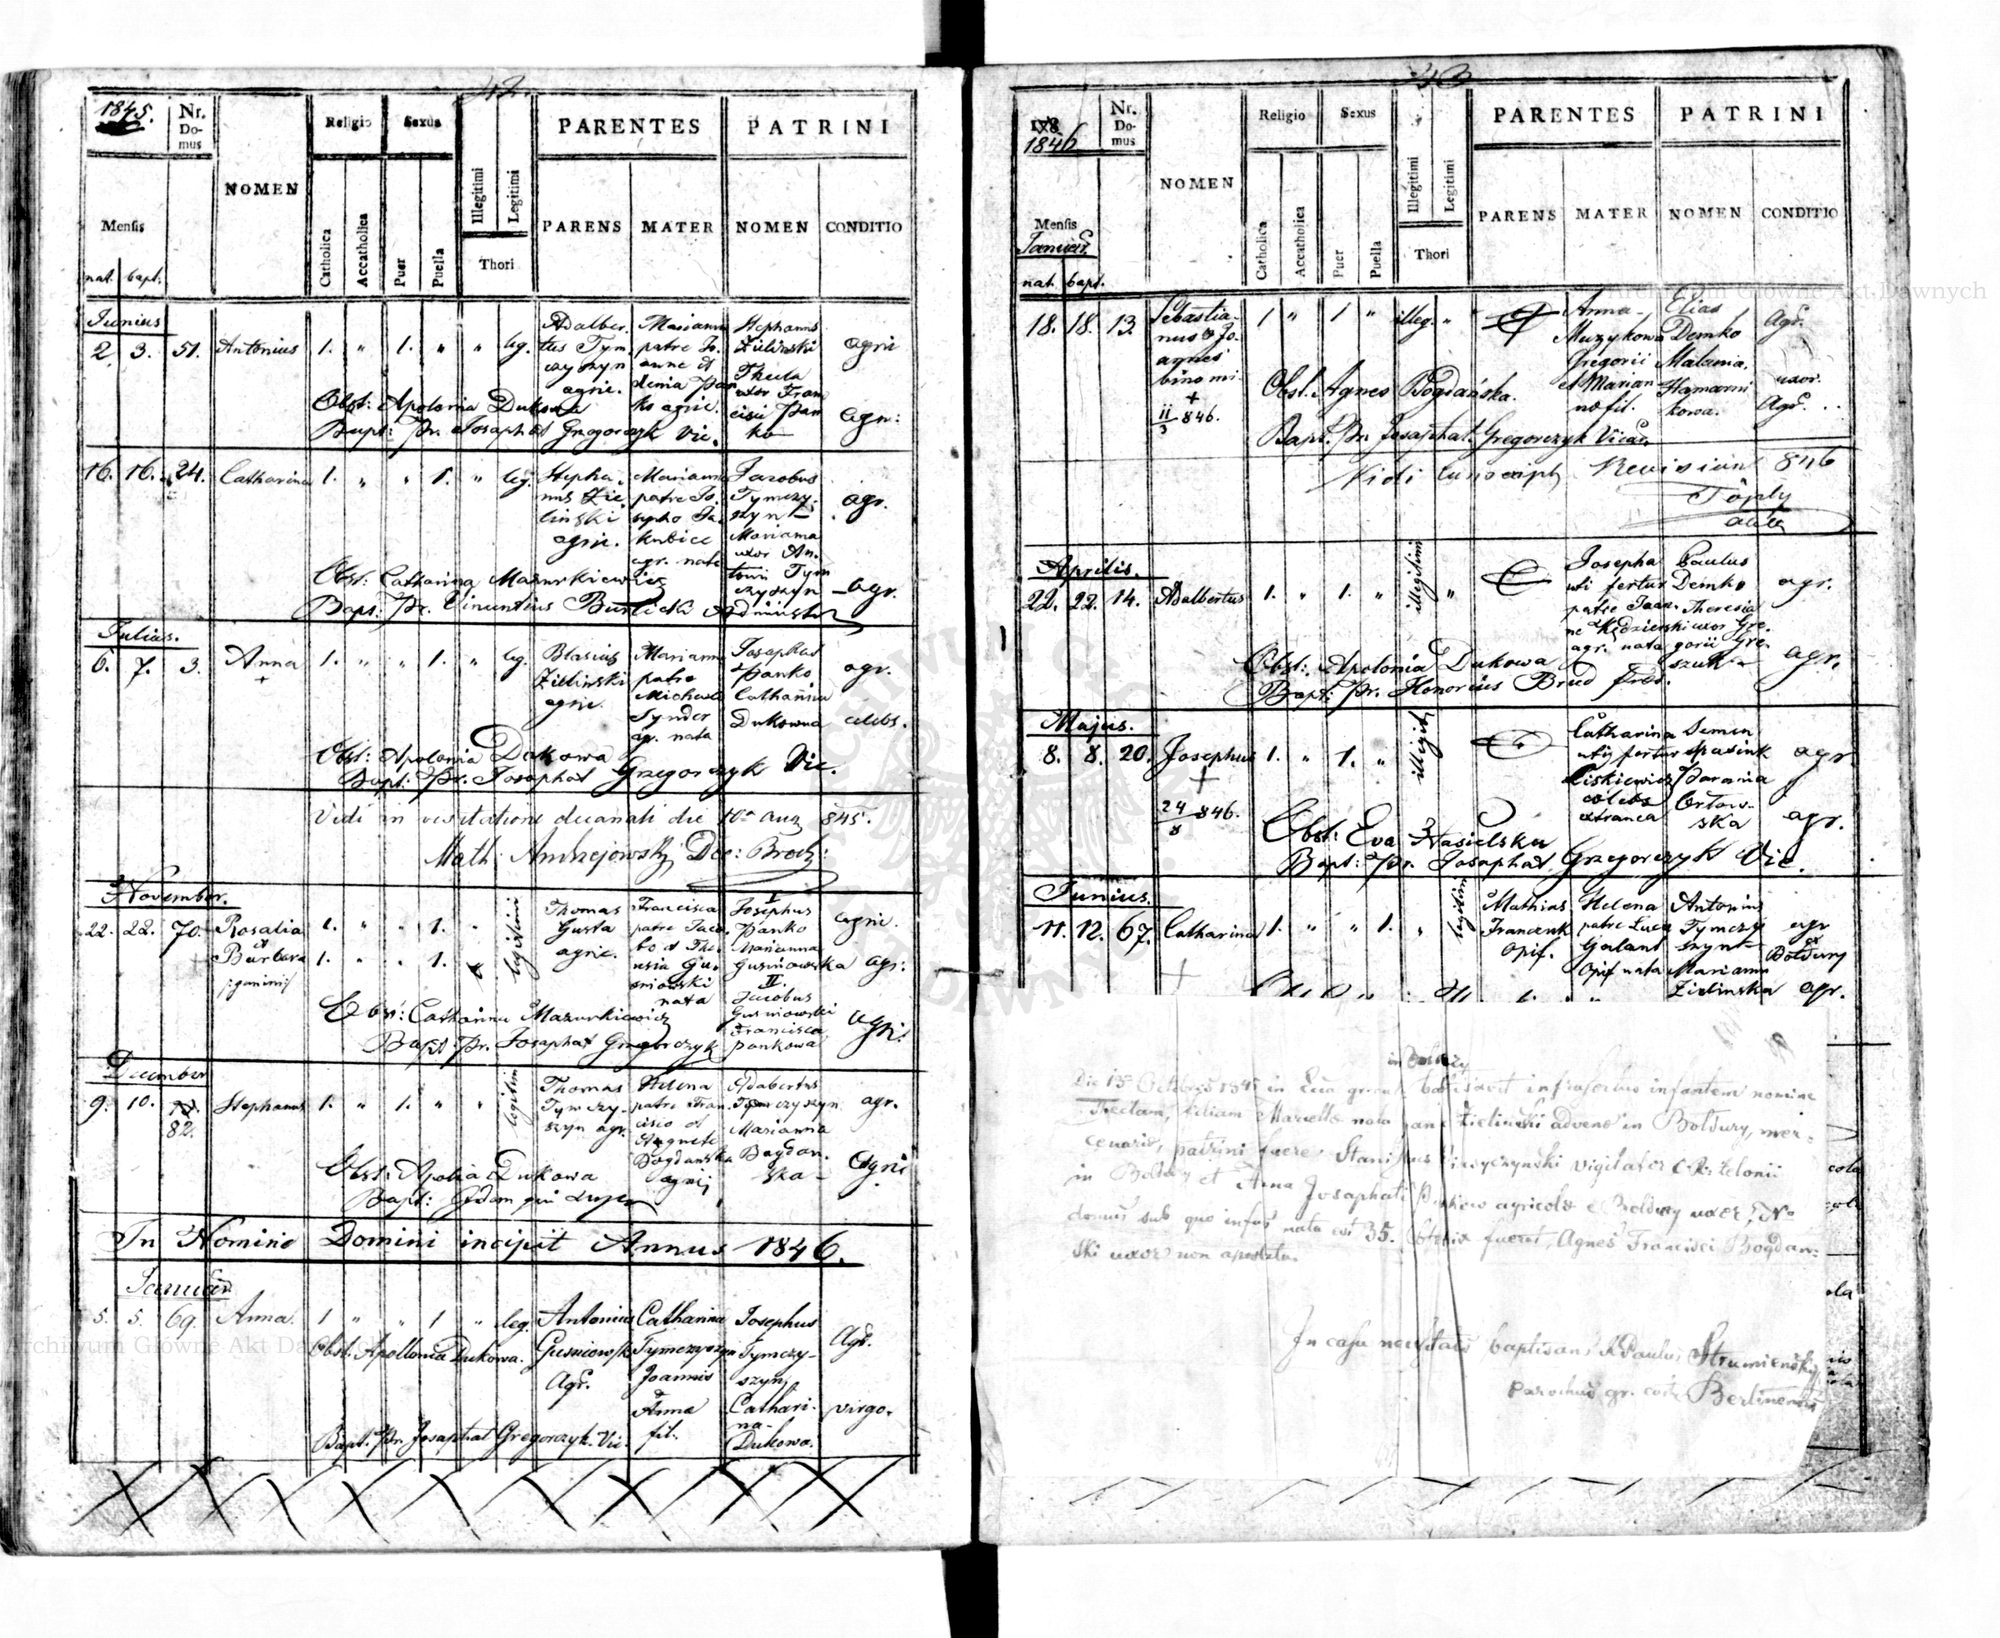 42.
1845.
Nr. Domus
NOMEN
Religio
Sexus
PARENTES
PATRINI
Mensis
nat. bapt.
Catholica
Accatholica
Puer
Puella
Illegitimi
Legitimi
Thori
PARENS
MATER
NOMEN
CONDITIO
Junius
2. 3. 51. Antonius 1. " 1. " " leg.
Adalber-
tus Tym-
czyszyn
agric.
Marianna
patre Jo-
anne et
Pan
ko agric.
Stephanus
Zielinski
Thecla
uxor Fran
cisci Pan
ko
agric
agr:
Obst: Apolonia Dukowa
Bapt: Pr. Josaphat Grzegorczyk Vic.
16. 16. 24. Catharina 1. " " 1. " leg.
Stepha-
nus Zie
linski
agric.
Marianna
patre Jo-
sepho Ja-
kubice
agr. nata
Jacobus
Tymczy-
szyn
Marianna
uxor An-
tonii Tym
czyszyn
agr.
agr.
Obst: Catharina Mazurkiewicz
Bapt: Pr. Vincentius Burlicki Administr
Julius.
6. 7. 3. Anna 1. " " 1. " leg.
+
Blasius
Zielinski
agric.
Marianna
patre
Michaele
Synder
agr. nata
Josaphat
Panko
Catharina
Dukowna
agr.
celebs.
Obst: Apolonia Dukowa
Bapt: Pr. Josaphat Grzegorczyk Vic.
Vidi in visitatione decanali die 10a Aug 845.
Math. Andrzejowski Dec: Brod:
November.
22. 22. 70. Rosalia 1. " " 1. "
et
Barbara 1. " " 1.
legitimi
Thomas
Gusta
agric.
Francisca
patre Jaco-
bo et The-
resia Gu-
sniowski
nata
I
Josephus
Panko
Marianna
Gusniowska
II.
Jacobus
Gusniowski
Francisca
Pankowa
agric.
agr:
agri:
Obst: Catharina Mazurkiewicz
Bapt: Pr. Josaphat Grzegorczyk
December
9. 10. 82. Stephanus 1. " 1. " "
legitim
Thomas
Tymczy-
szyn agr.
Helena
patre Fran
cisco et
Agnete
Bogdanska
Adalbertus
Tymczyszyn
Marianna
Bogdan-
ska
agr.
agri
Obst: Apolia Dukowa
Bapt:
In Nomine Domini incipit Annus 1846.
5. 5. 69. Anna. 1 " " 1 " leg.
Antonius
Gusniowski
Agr.
Catharina
Tymczyszyn
Joannis
Anna
fil.
Josephus
Tymczy-
szyn,
Cathari-
na
Dukowa.
Agr.
virgo.
Obst. Apollonia Dukowa.
Bapt. Pr. Josaphat Gregorczyk. Vic.
Archiwum Główne Akt Dawnych
43
1846
Nr. Domus
NOMEN
Religio
Sexus
PARENTES
PATRINI
Mensis
Januar.
nat. bapt.
Catholica
Accatholica
Puer
Puella
Illegitimi
Legitimi
Thori
PARENS
MATER
NOMEN
CONDITIO
Archiwum Główne Akt Dawnych
18. 18. 13 Sebastia- 1 " 1 " illeg. "
nus & Jo-
annes
binomi-
+
11/3 846.
Anna
Muzykowa
Gregorii
et Marian
na fil.
Elias
Demko
Malania
Hamarni
kowa.
Agr.
uxor.
Agr.
Obst. Agnes Bogdańska.
Bapt. Pr. Josaphat Gregorczyk Vic
Vidi 846
Aprilis.
22. 22. 14. Adalbertus 1. " 1. " illegitim "
Josepha
uti fertur
patre Joan-
ne Kędzierski
agr. nata
Paulus
Demko
Theresia
uxor Gre-
gorii Gre-
szuk
agr.
agr.
Obst: Apolonia Dukowa
Bapt: Pr. Honorius
Majus.
8. 8. 20. Josephus 1. " 1. " illegit
+
24/8 846.
Catharina
uti fertur
Liskiewicz
celebs
extranea
Semen
Spasiuk
Parania
Orłow-
ska
agr
agr.
Obst: Eva Hasielska
Bapt: Pr. Josaphat Grzegorczyk Vic.
Junius.
11. 12. 67. Catharina 1. " " 1. " legitim
Mathias
Franczuk
opif.
Helena
patre Luca
Galant
opif nata
Antonius
Tymczy
szyn
Marianna
Zielinska
agr
ex
Boldury
agr.
Die 15a Octobris 1845 in baptisavit infrascriptus infantem nomine
Theclam, filiam Marcella nata Zielinski advenae in Boldury, mer-
cenario, patrini fuere Stanislaus vigilator
in Boldury et Anna Josaphati agricolae e Boldury uxor, No
domus sub quo infans nata est 35. Obstetrix fuerat Agnes Francisci Bogdan-
ski uxor non
In casu necessitatis baptisans Paulus Strumienski
parochus gr. cath. Berlinensis